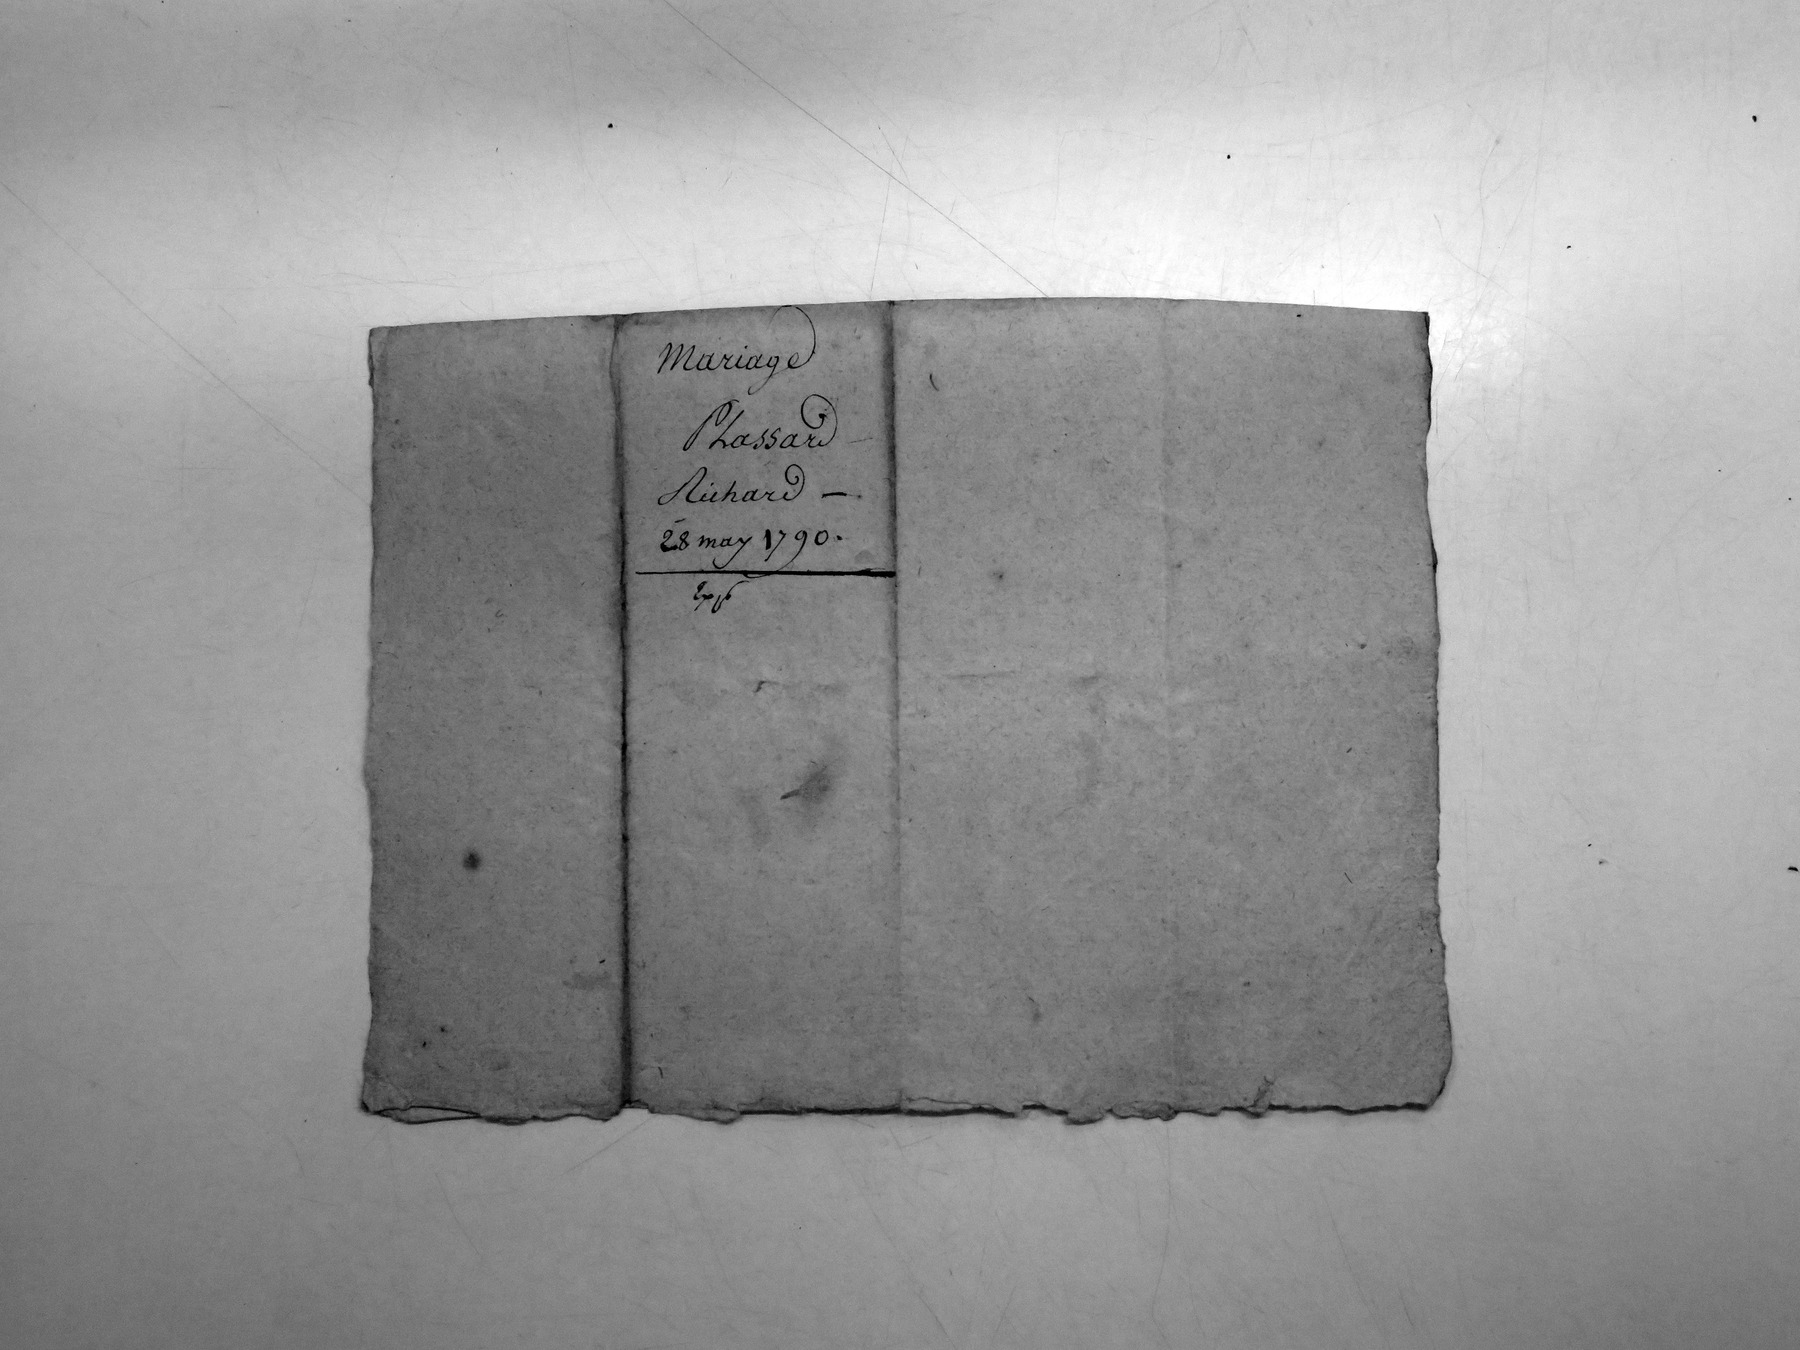 Mariage
Phassard -
Richard -
28 may 1790.